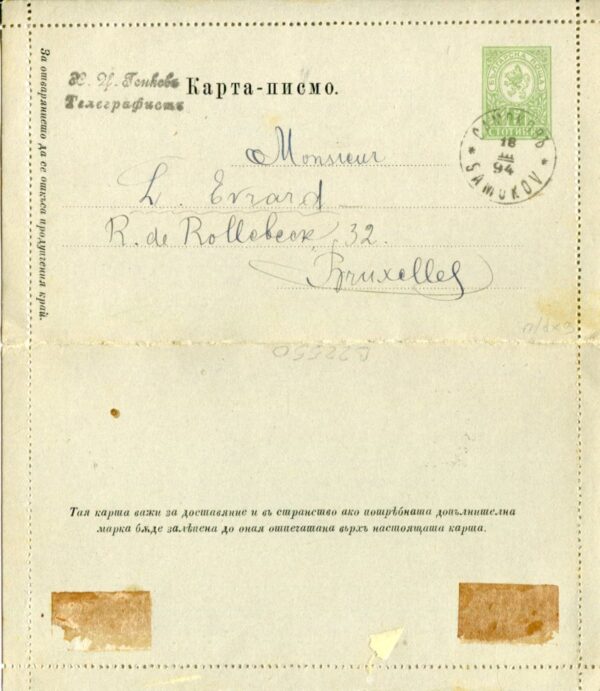 За отварянието да се откъсва продупчения край.
Телеграфистъ
Карта-писмо.
БЪЛГАРСКА ПОЩА
СТОТИНКИ
18
III
94
SAMOKOV
Monsieur
L. Evrard
R. de Rollebeek, 32.
Bruxelles
C22550
Тая карта важи за доставяние и въ странство ако потрѣбната допълнителна
марка бѫде залѣпена до оная отпечатана върхъ настоящата карта.